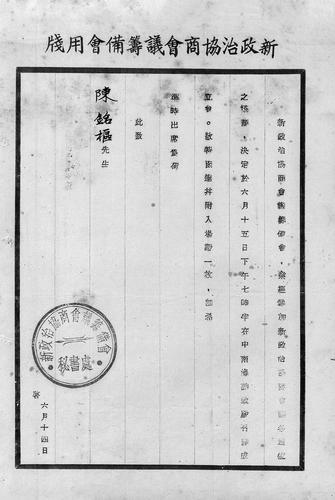 新政治協商會議籌備會用牋
新政治協商會議籌備會，業經新政治協商會議各單位
之協議，決定於六月十五日下午七時半在中南海勤政殿召開成
立會。函達并附入場證一枚，請
準時出席爲荷
此致
陳銘樞先生
新政治協商會議籌備會
秘書處
六月十四日